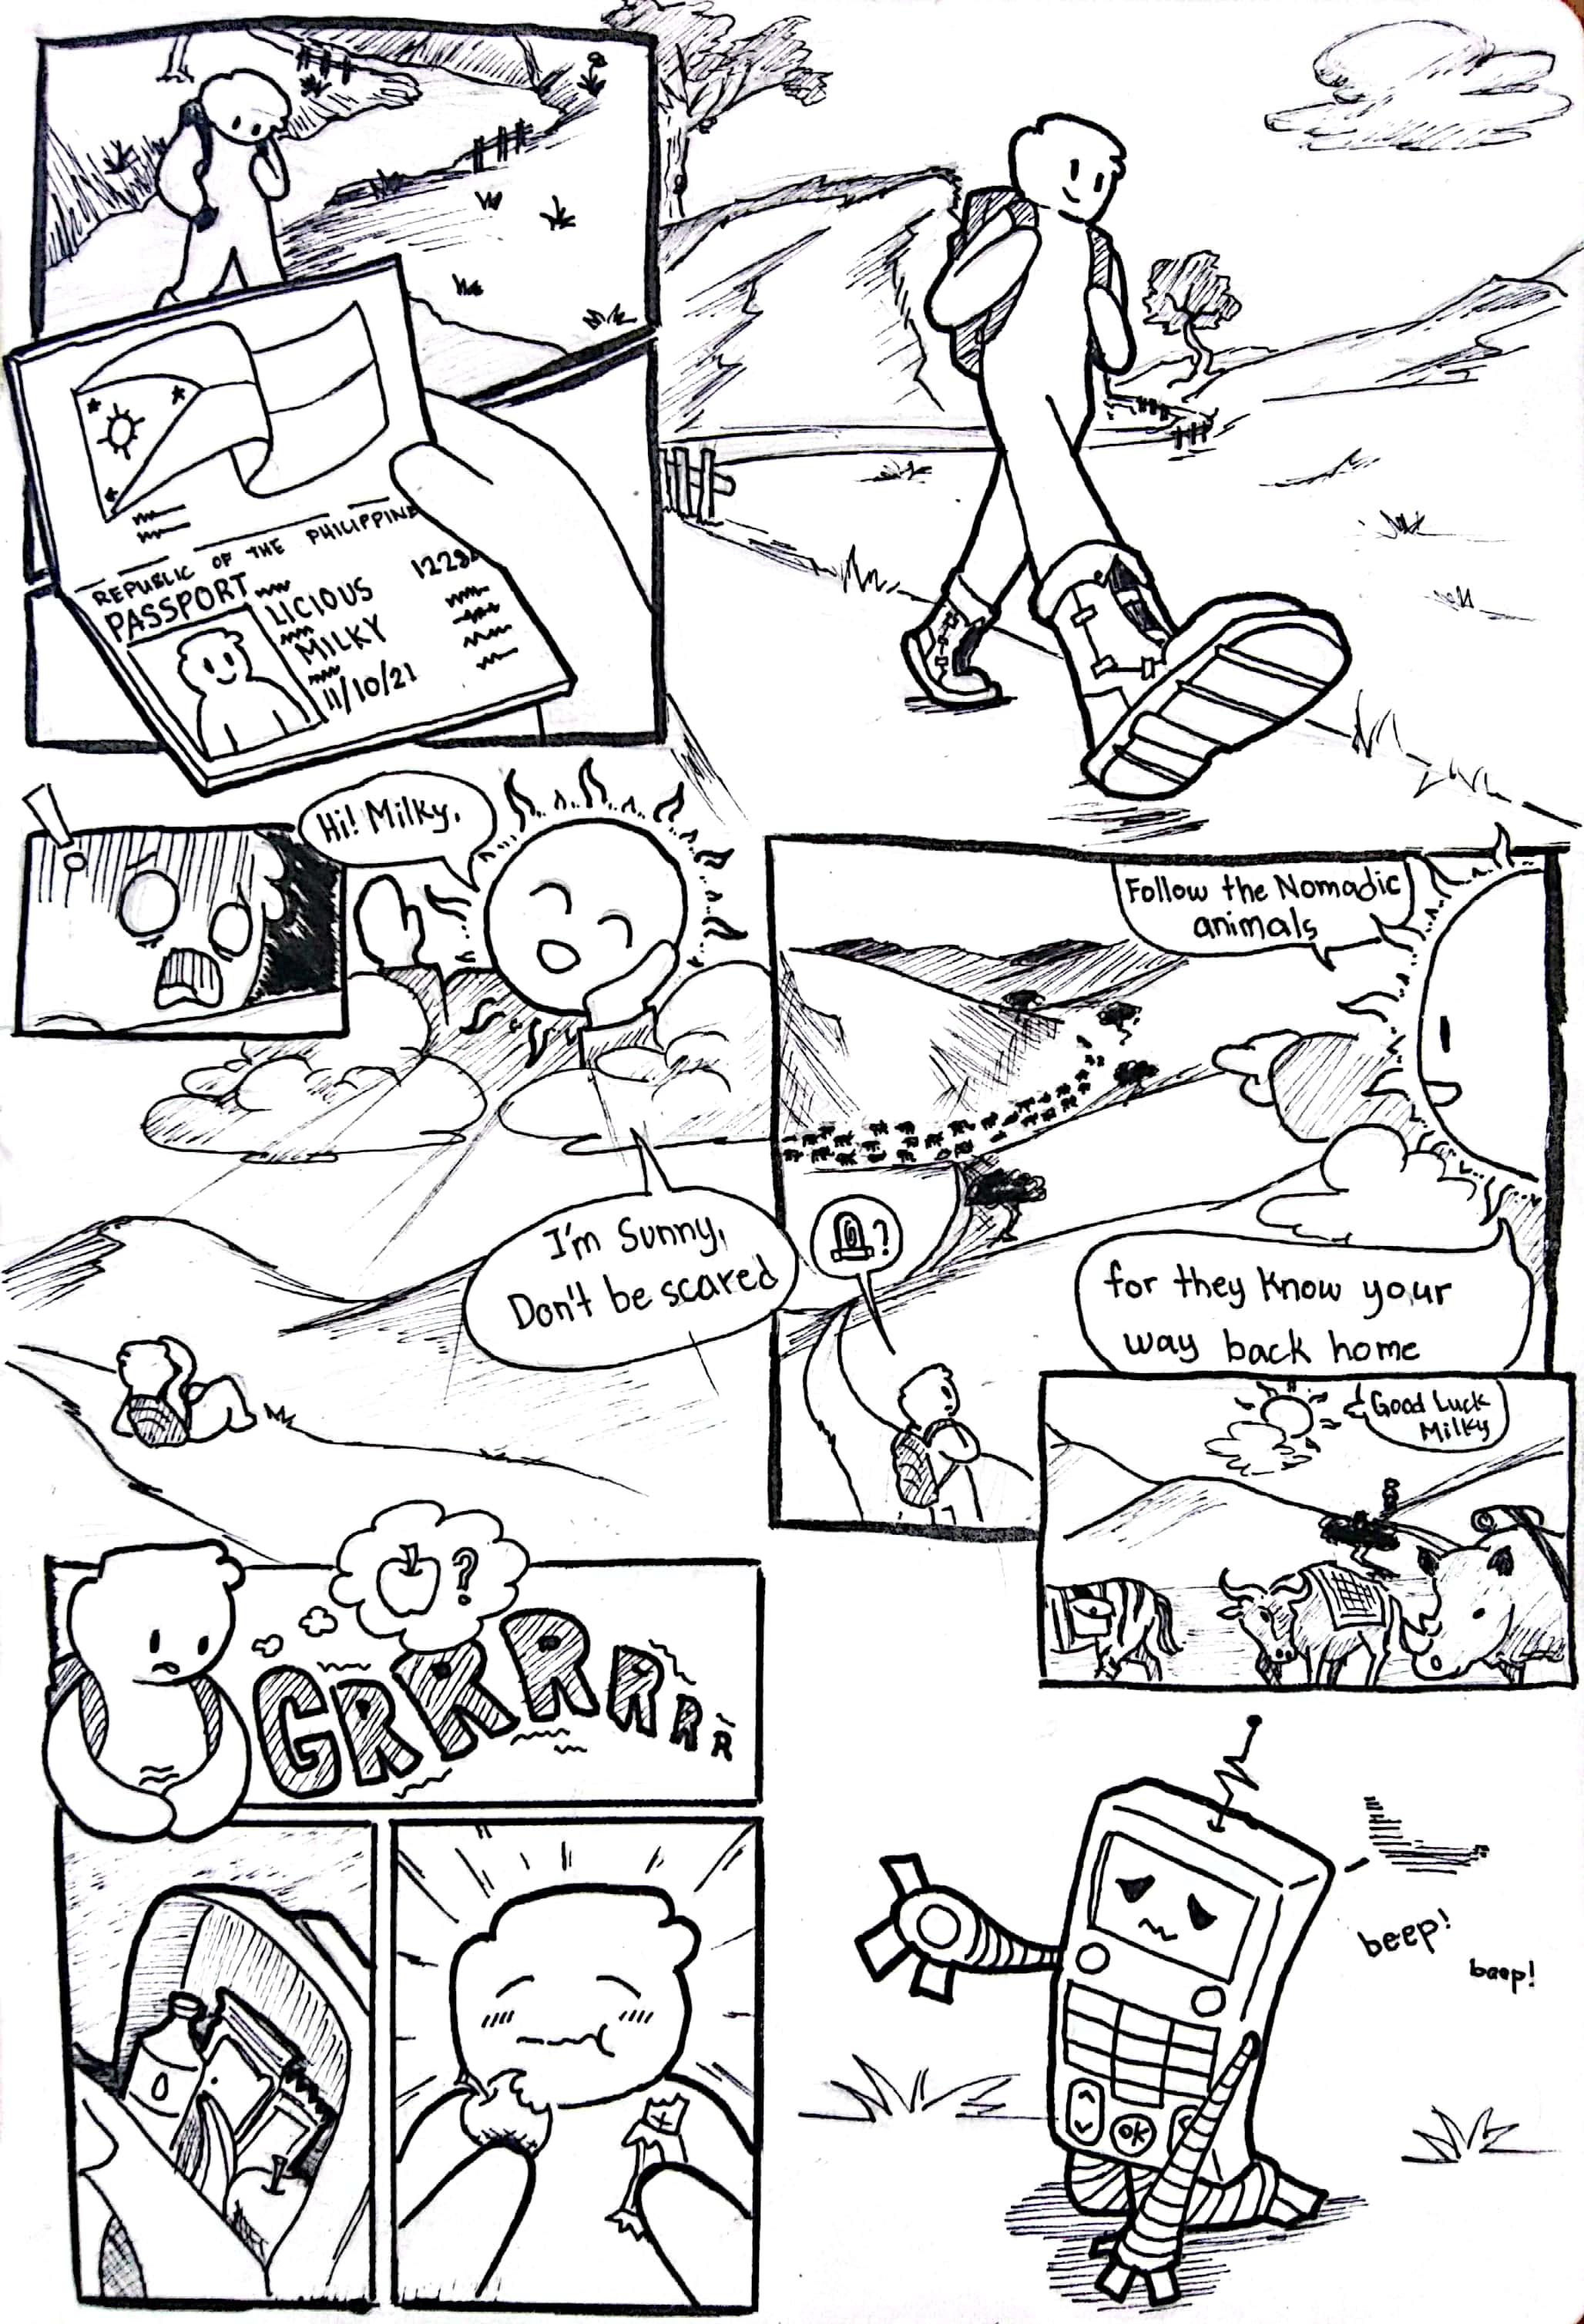 REPUBLIC OF THE PHILIPPINE
PASSPORT
LICIOUS
MILKY
11/10/21
!
Hi! Milky.
I'm Sunny,
Don't be scared
Follow the Nomadic
animals
?
for they know your
way back home
Good Luck
Milky
?
GRRRRRR
beep!
beep!
OK